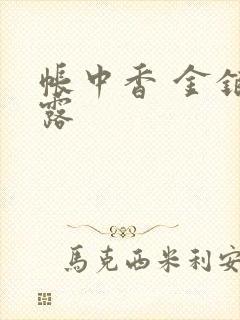 帳中香 金
露
馬克西米利安